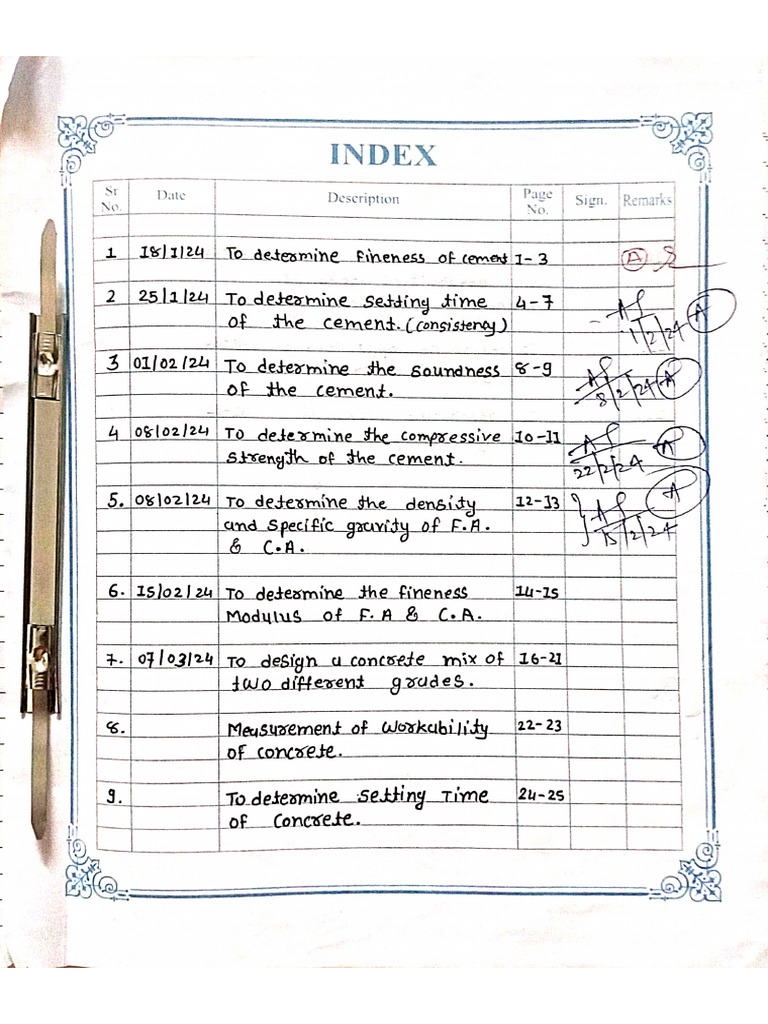 INDEX
Sr No. Date Description Page No. Sign. Remarks
1 18/1/24 To determine fineness of cement 1-3 A
2 25/1/24 To determine setting time 4-7
of the cement. (consistency) 1/2/24 A
3 01/02/24 To determine the soundness 8-9
of the cement. 8/2/24 A
4 08/02/24 To determine the compressive 10-11
strength of the cement. 22/2/24 A
5. 08/02/24 To determine the density 12-13 A
and specific gravity of F.A. 15/2/24
& C.A.
6. 15/02/24 To determine the fineness 14-15
Modulus of F.A & C.A.
7. 07/03/24 To design a concrete mix of 16-21
two different grades.
8. Measurement of workability 22-23
of concrete.
9. To determine setting Time 24-25
of concrete.